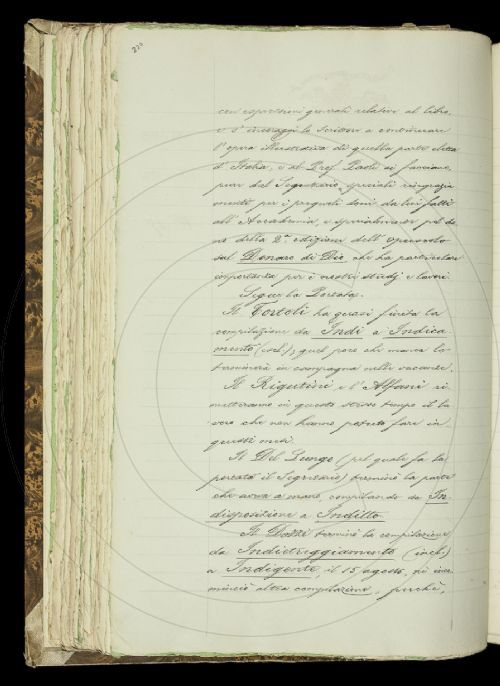 270
con espressioni generali relative al libro,
e s'incoraggi lo Scrittore a continuare
l'opera illustrativa di quella parte eletta
d'Italia, e al Prof. Paoli si facciano,
pure dal Segretario, speciali ringrazia
menti per i pregiati doni da lui fatti
all'Accademia, e specialmente pel do
no della 2.ª edizione dell'opuscolo
sul Denaro di Dio che ha particolare
importanza per i nostri studj e lavori.
Segue la Portata.
Il Tortoli ha quasi finita la
compilazione da Indi a Indica-
mento (incl.); quel poco che manca lo
terminerà in campagna nelle vacanze.
Il Rigutini e l'Alfani ri
metteranno in questo stesso tempo il la
voro che non hanno potuto fare in
questi mesi.
Il Del Lungo (pel quale fa la
portata il Segretario) terminò la parte
che aveva a mano, compilando da In-
disposizione a Inditto.
Il Dazzi terminò la compilazione
da Indietreggiamento (incl.)
a Indigente, il 15 agosto, nè inco
minciò altra compilazione, perchè,